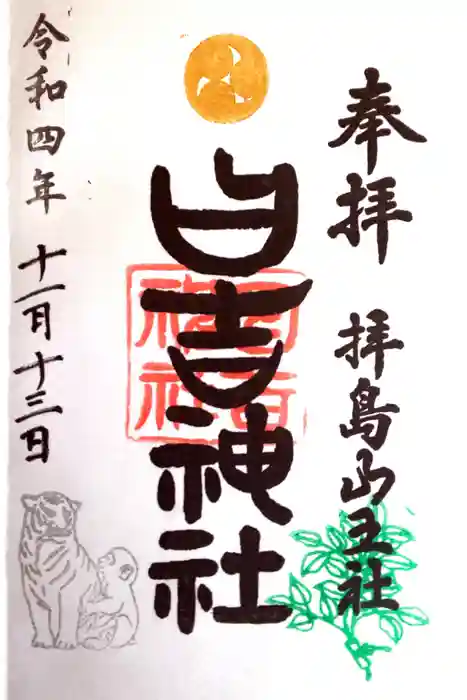 奉拝 拝島山王社
日吉神社
令和四年 十一月十三日